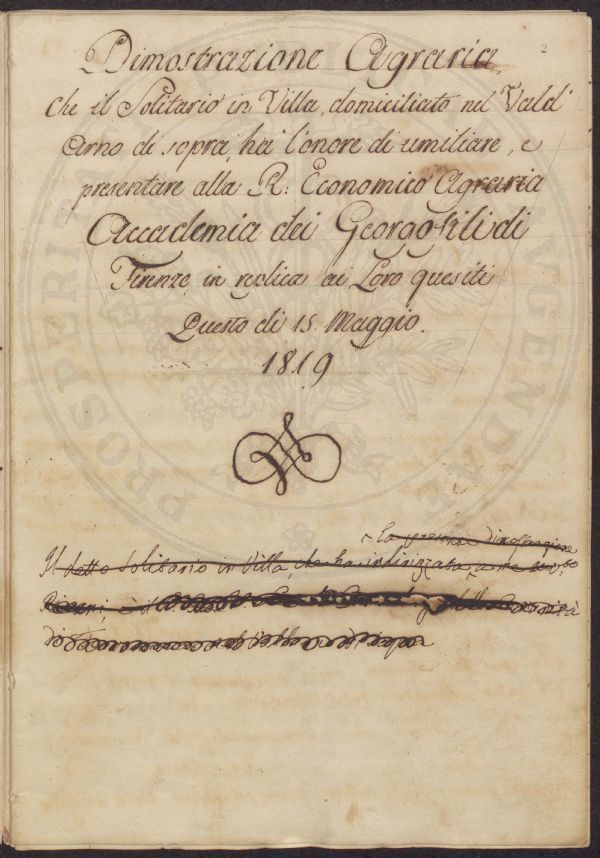 2
Dimostrazione Agraria
che il Solitario in Villa, domiciliato nel Vald'
Arno di sopra, ha l'onore di umiliare, e
presentare alla R: Economico Agraria
Accademia dei Georgofili di
Firenze in replica ai Loro quesiti
Questo dì 15. Maggio.
1819
PROSPERITATI AUGENDAE
la presente dimostrazione
Il detto Solitario in Villa, che ha indirizzata a me